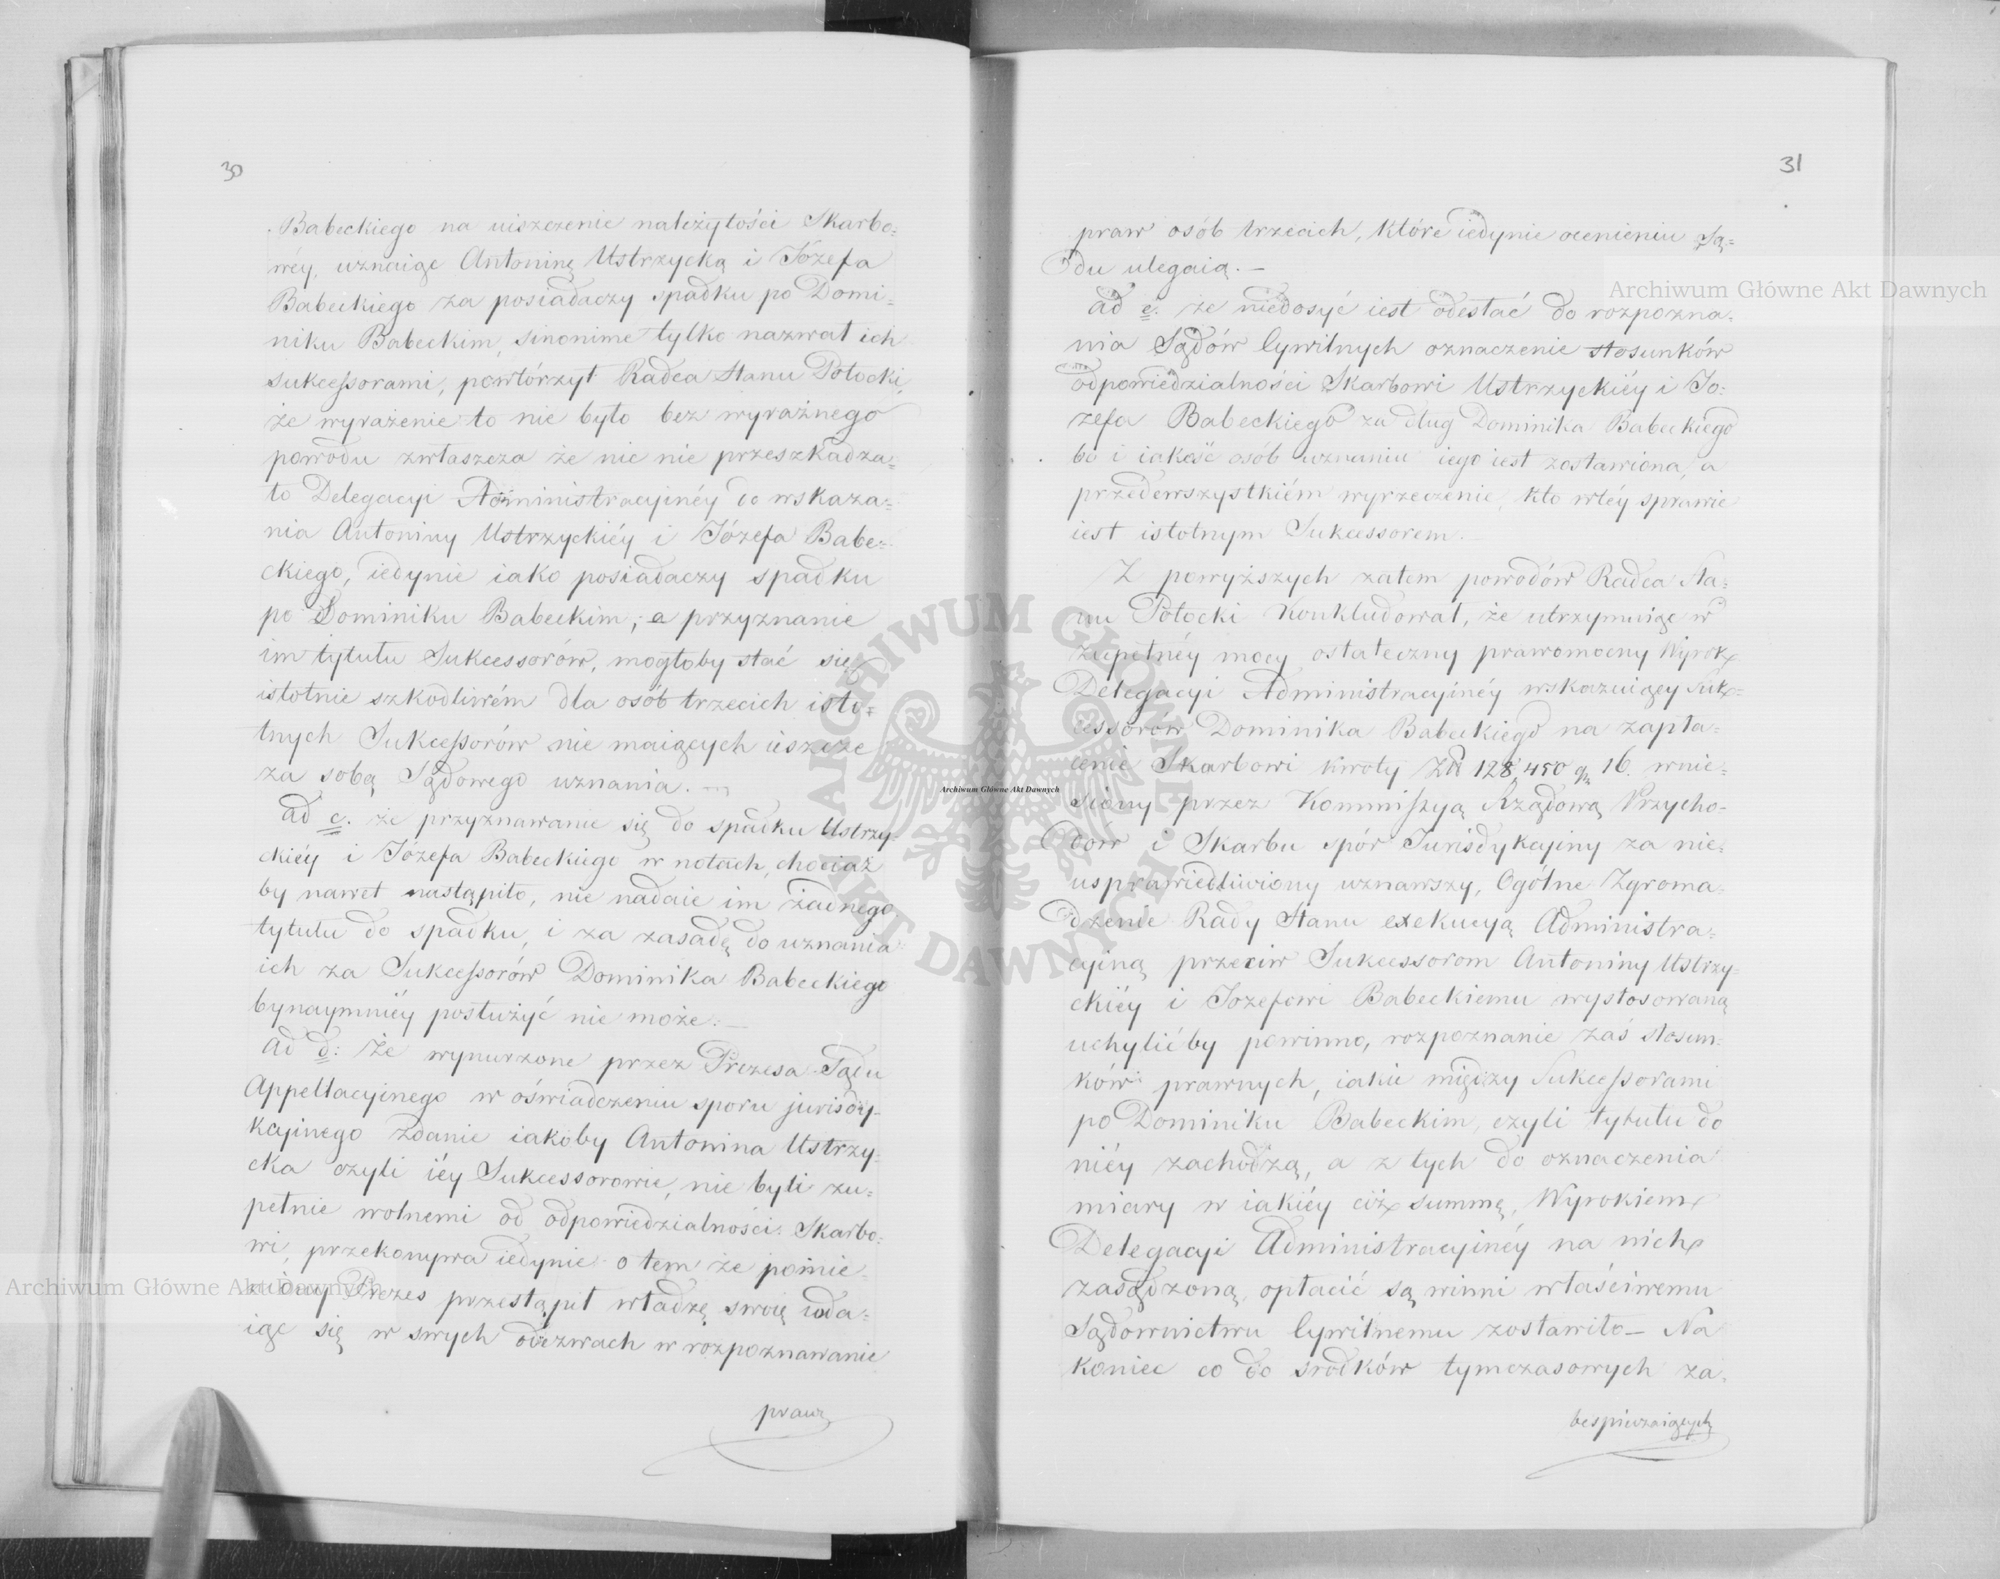 30
Babeckiego na uiszczenie należytości Skarbo=
wéy, uznaiąc Antoninę Ustrzycką i Józefa
Babeckiego za posiadaczy spadku po Domi=
niku Babeckim, sinonime tylko nazwał ich
sukcessorami, powtórzył Radca Stanu Potocki,
że wyrażenie to nie było bez wyraźnego
powodu zwłaszcza że nic nie przeszkadza=
ło Delegacyi Administracyinéy do wskaza=
nia Antoniny Ustrzyckiéy i Józefa Babe=
ckiego, iedynie iako posiadaczy spadku
po Dominiku Babeckim; a przyznanie
im tytułu Sukcessorów, mogłoby stać się
istotnie szkodliwém dla osób trzecich isto=
tnych Sukcessorów nie maiących ieszcze
za sobą Sądowego uznania. —
ad c. że przyznawanie się do spadku Ustrzy=
ckiéy i Józefa Babeckiego w notach, chociaż
by nawet nastąpiło, nie nadaie im żadnego
tytułu do spadku, i za zasadę do uznania
ich za Sukcessorów Dominika Babeckiego
bynaymniéy posłużyć nie może. —
Ad d: Że wynurzone przez Prezesa Sądu
Appellacyinego w oświadczeniu sporu jurisdy=
kcyinego zdanie iakoby Antonina Ustrzy=
cka czyli iéy Sukcessorowie, nie byli zu=
pełnie wolnemi od odpowiedzialności Skarbo=
wi, przekonywa iedynie o tem że pomie=
niony Prezes przestąpił władzę swoię wda=
iąc się w swych odezwach w rozpoznawanie
praw
31
praw osób trzecich, które iedynie ocenieniu Są=
du ulegaią. —
ad e. że niedosyć iest odesłać do rozpozna=
nia Sądów Cywilnych oznaczenie stosunków
odpowiedzialności Skarbowi Ustrzyckiéy i Jó=
zefa Babeckiego za dług Dominika Babeckiego
bo i iakość osób uznaniu iego iest zostawiona, a
przedewszystkiém wyrzeczenie, kto wtéy sprawie
iest istotnym Sukcessorem.
Z powyższych zatem powodów Radca Sta=
nu Potocki konkludował, że utrzymuiąc w
zupełnéy mocy ostateczny prawomocny Wyrok
Delegacyi Administracyinéy wskazuiący Suk=
cessorów Dominika Babeckiego na zapła=
cenie Skarbowi kwoty Zł 128,450 gr 16. wnie=
siony przez Kommissyą Rządową Przycho=
dów i Skarbu spór Jurisdykcyiny za nie=
usprawiedliwiony uznawszy, Ogólne Zgroma=
dzenie Rady Stanu exekucyą Administra=
cyiną przeciw Sukcessorom Antoniny Ustrzy=
ckiéy i Jozefowi Babeckiemu wystosowaną
uchylićby powinno, rozpoznanie zaś stosun=
ków prawnych, iakie między Sukcessorami
po Dominiku Babeckim, czyli tytułu do
niéy zachodzą, a z tych do oznaczenia
miary w iakiéy ciż summę, Wyrokiem
Delegacyi Administracyinéy na nich
zasądzoną, opłacić są winni właściwemu
Sądownictwu Cywilnemu zostawiło — Na
koniec co do srodków tymczasowych za=
bespieczaiących